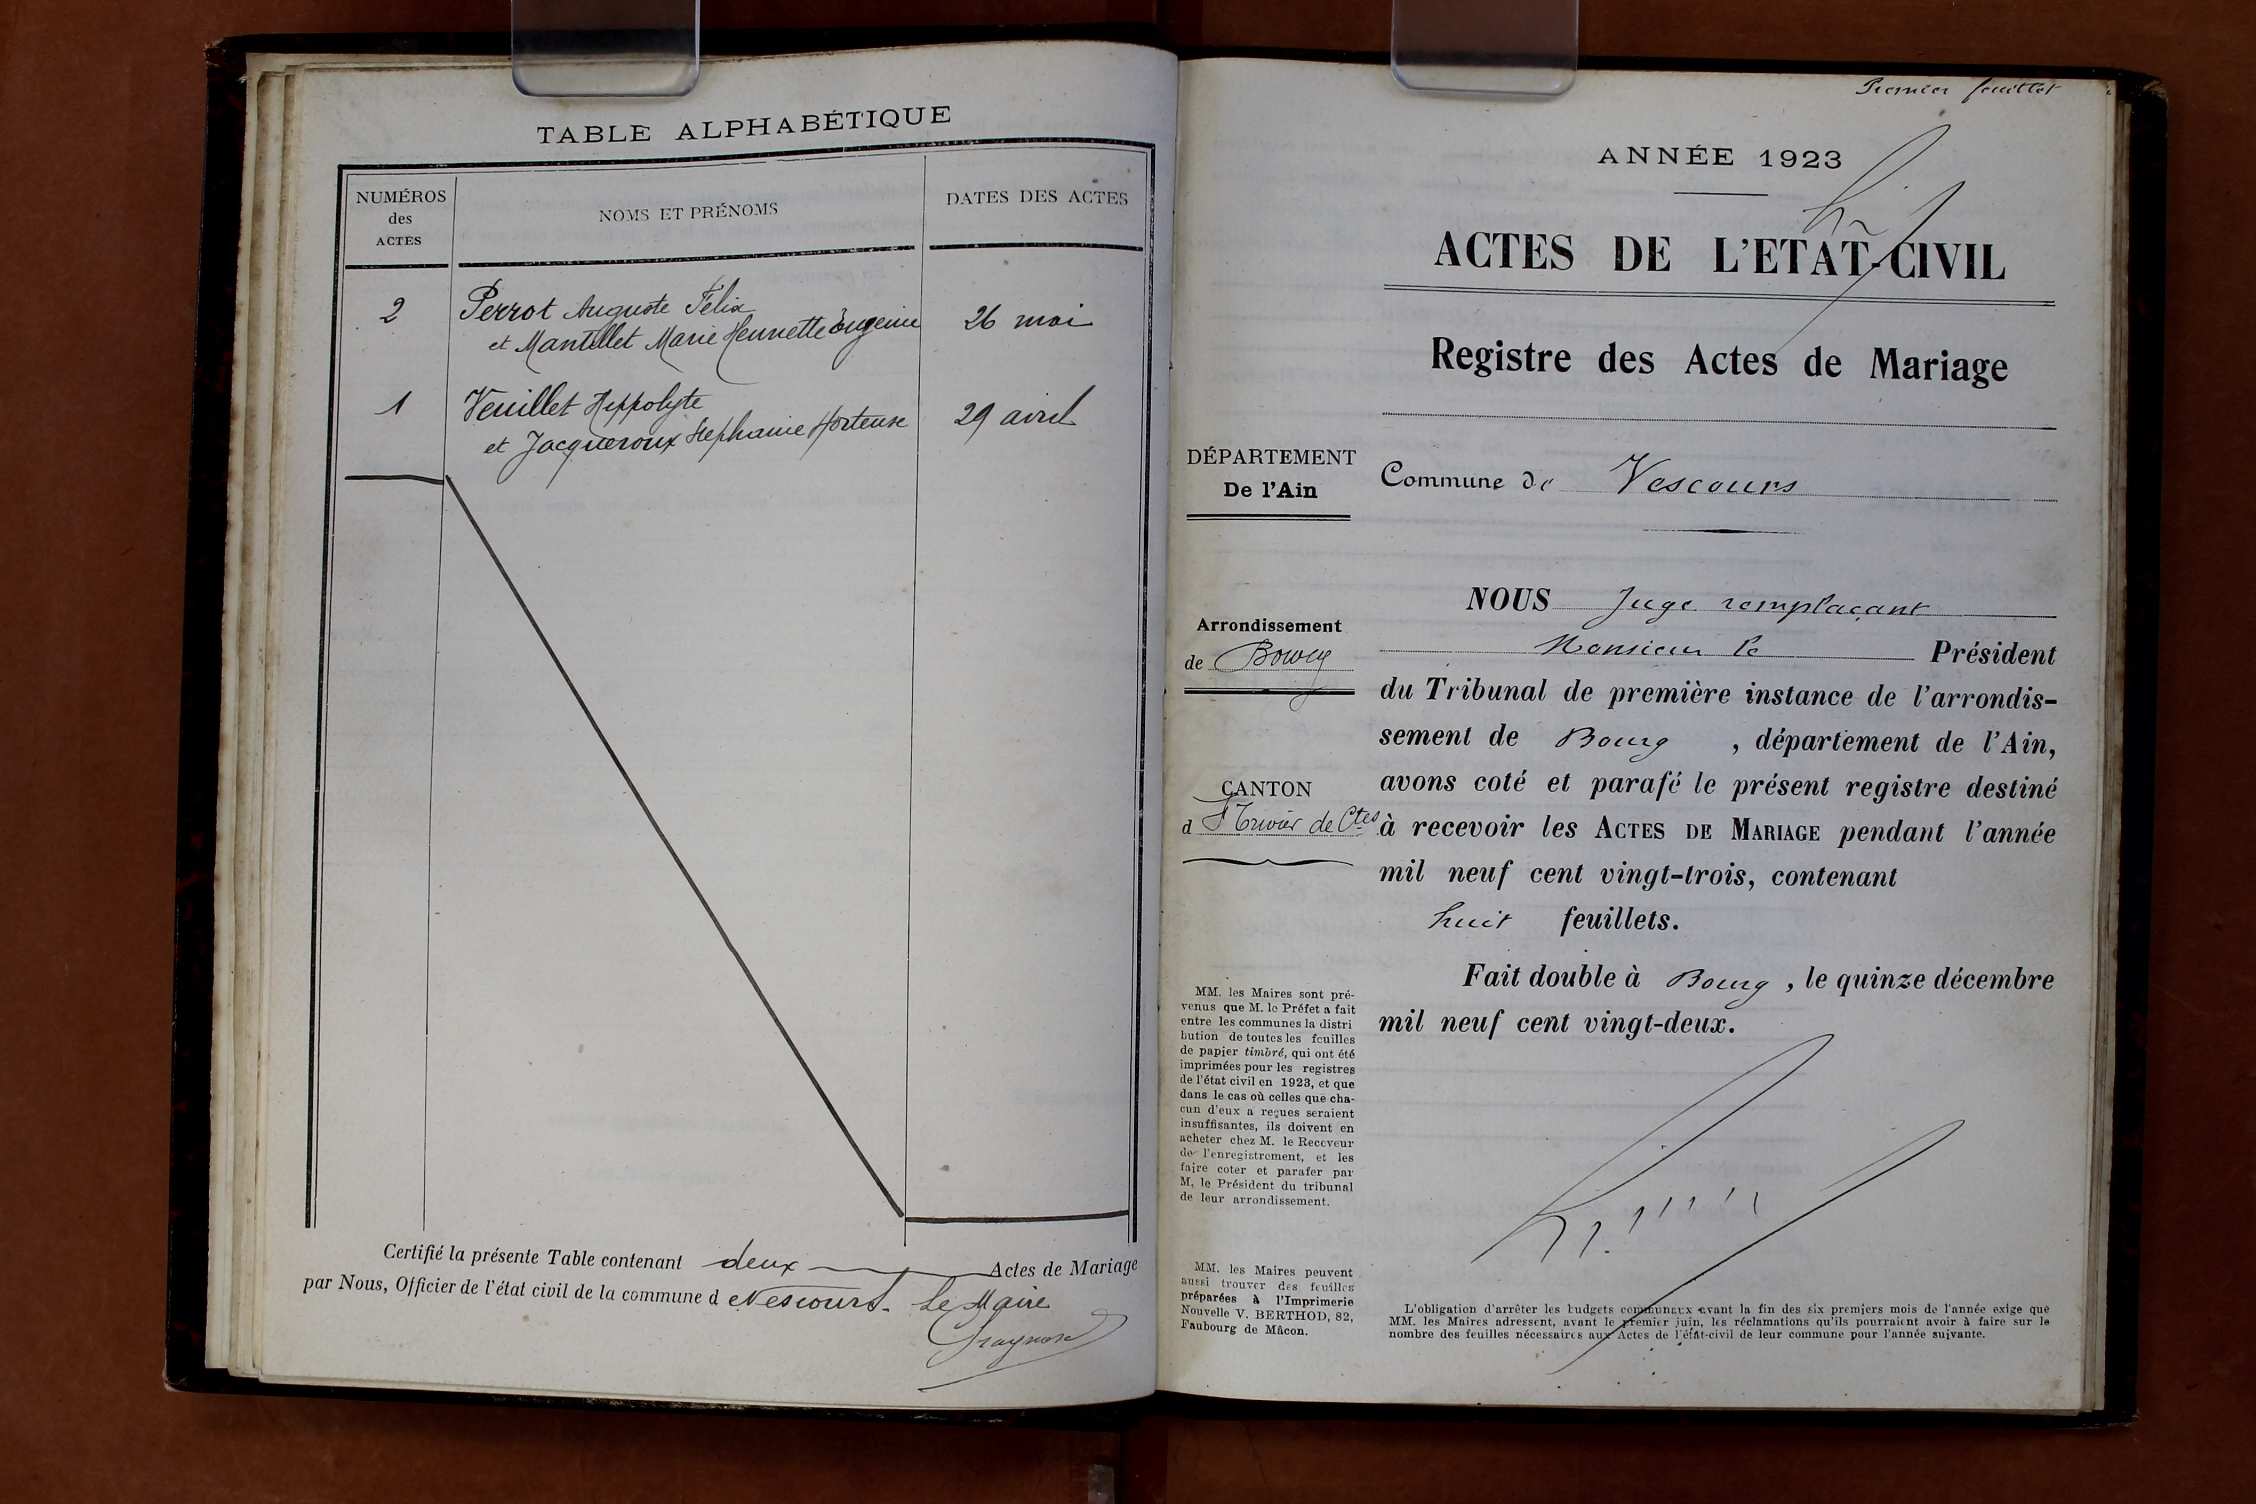 TABLE ALPHABÉTIQUE
NUMÉROS
des
ACTES
NOMS ET PRÉNOMS
DATES DES ACTES
2
Perrot Auguste Félix
et Mantillet Marie Henriette Eugénie
26 mai
1
Veuillet Hippolyte
et Jacqueroux Stephanie Hortense
29 avril
Certifié la présente Table contenant deux Actes de Mariage
par Nous, Officier de l'état civil de la commune d e Vescours. Le Maire
Premier feuillet
ANNÉE 1923
ACTES DE L'ETAT-CIVIL
Registre des Actes de Mariage
DÉPARTEMENT
De l'Ain
Commune de Vescours
Arrondissement
de Bourg
CANTON
d St Trivier de Ctes
NOUS Juge remplaçant
Monsieur le Président
du Tribunal de première instance de l'arrondis-
sement de Bourg , département de l'Ain,
avons coté et parafé le présent registre destiné
à recevoir les ACTES DE MARIAGE pendant l'année
mil neuf cent vingt-trois, contenant
huit feuillets.
Fait double à Bourg , le quinze décembre
mil neuf cent vingt-deux.
MM. les Maires sont pré-
venus que M. le Préfet a fait
entre les communes la distri
bution de toutes les feuilles
de papier timbré, qui ont été
imprimées pour les registres
de l'état civil en 1923, et que
dans le cas où celles que cha-
cun d'eux a reçues seraient
insuffisantes, ils doivent en
acheter chez M. le Receveur
de l'enregistrement, et les
faire coter et parafer par
M. le Président du tribunal
de leur arrondissement.
MM. les Maires peuvent
aussi trouver des feuilles
préparées à l'Imprimerie
Nouvelle V. BERTHOD, 82,
Faubourg de Mâcon.
L'obligation d'arrêter les budgets communaux avant la fin des six premiers mois de l'année exige que
MM. les Maires adressent, avant le premier juin, les réclamations qu'ils pourraient avoir à faire sur le
nombre des feuilles nécessaires aux Actes de l'état-civil de leur commune pour l'année suivante.